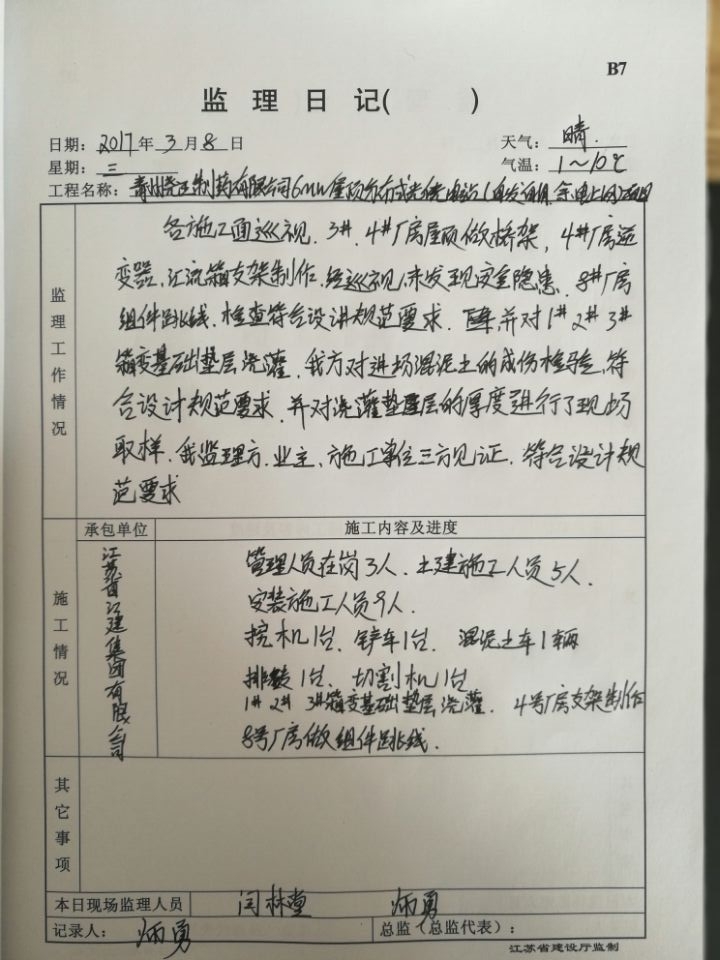 B7
监 理 日 记(      )
日期: 2017 年 3 月 8 日 天气: 晴.
星期: 三 气温: 1～10℃
工程名称: 制药有限公司6MW屋顶分布式光伏电站(自发自用,余电上网)项目
监理工作情况
各施工面巡视. 3#. 4#厂房屋顶做桥架, 4#厂房逆
变器,汇流箱支架制作.经巡视,未发现安全隐患. 8#厂房
组件跳线.检查符合设计规范要求. 并对1# 2# 3#
箱变基础垫层浇灌.我方对进场混泥土的成份检验,符
合设计规范要求.并对浇灌垫层的厚度进行了现场
取样.我监理方.业主、施工单位三方见证.符合设计规
范要求
施工情况
承包单位 施工内容及进度
江苏省江建集团有限公司
管理人员在岗3人.土建施工人员5人.
安装施工人员9人.
挖机1台、铲车1台、混泥土车1辆
1台、切割机1台
1# 2# 3#箱变基础垫层浇灌. 4号厂房支架制作
8号厂房做组件跳线.
其它事项
本日现场监理人员 闫林堂 炳勇
记录人: 炳勇 总监(总监代表):
江苏省建设厅监制